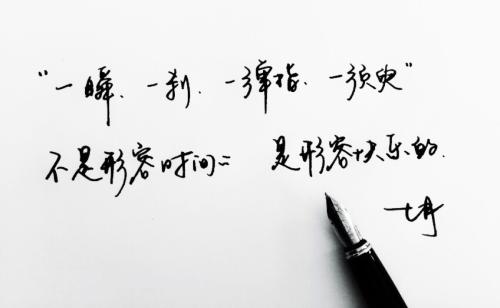 “一瞬、一刹、一弹指、一须臾”
不是形容时间, 是形容快乐的.